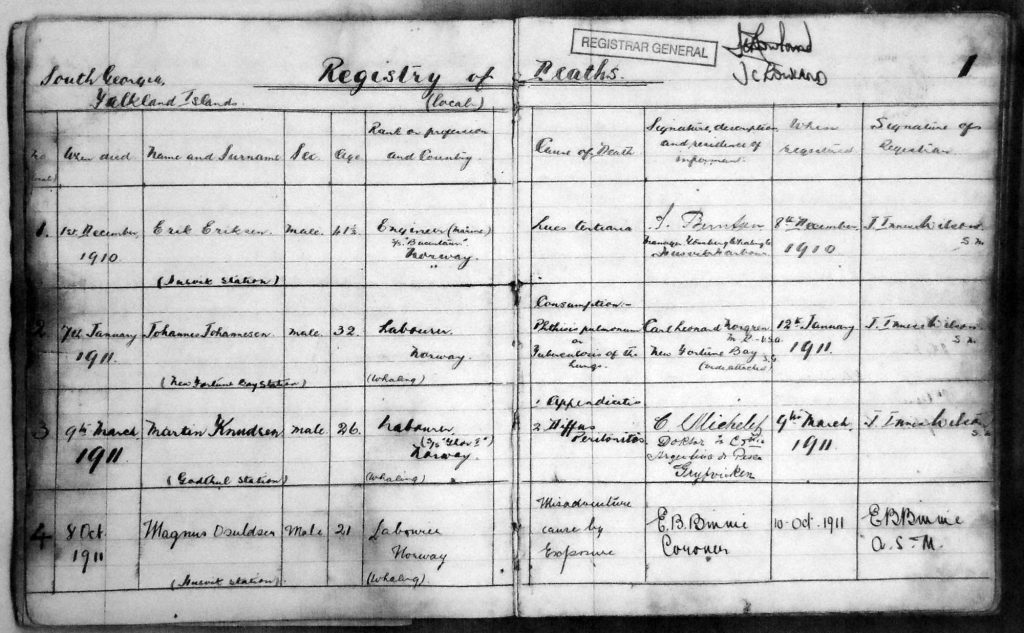 REGISTRAR GENERAL
1
South Georgia,
Falkland Islands.
Registry of Deaths.
(local)
When died
Name and Surname
Sex
Age
Rank or profession
and Country.
Cause of Death
Signature, description
and residence of
informant.
When
registered
Signature of
Registrar.
1.
1st December,
1910
Erik Eriksen
male.
Engineer (marine)
Norway.
Lues tertiaria
Manager
Husvik Harbour
8th December
1910
J. Innes Wilson
S.M.
(Husvik Station)
2.
7th January
1911
Johannes Johannesen
male.
32
Labourer.
Norway.
(Whaling)
Consumption-
Phthisis pulmonum
or
Tuberculosis of the
lungs.
Carl Leonard
New Fortune Bay
S.G.
12th January
1911.
J. Innes Wilson
S.M.
(New Fortune Bay Station)
3
9th March,
1911
Martin Knudsen
male
26.
Labourer,
Norway.
(Whaling)
1 Appendicitis
2. Diffus
Peritonitis
Doktor
Argentina de Pesca
Grytviken
9th March,
1911
J. Innes Wilson
S.M.
(Godthul Station)
4
8 Oct
1911
Magnus Osuldsen
Male
21
Labourer
Norway
(Whaling)
Misadventure
cause by
Exposure
E.B. Binnie
Coroner
10-Oct-1911
E B Binnie
A.S.M.
(Husvik Station)